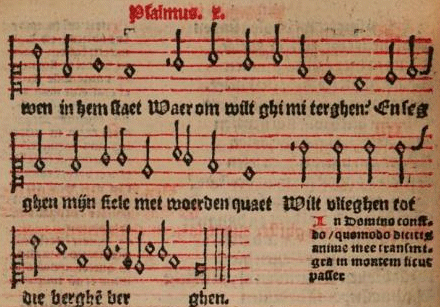 Psalmus. x.
wen in hem staet Waer om wilt ghi mi terghen? En seg
ghen mijn siele met woerden quaet Wilt vlieghen tot
In Domino confi⸗
do / quomodo dicitis
anime mee transmi⸗
gra in montem sicut
passer
die berghē ber ghen.